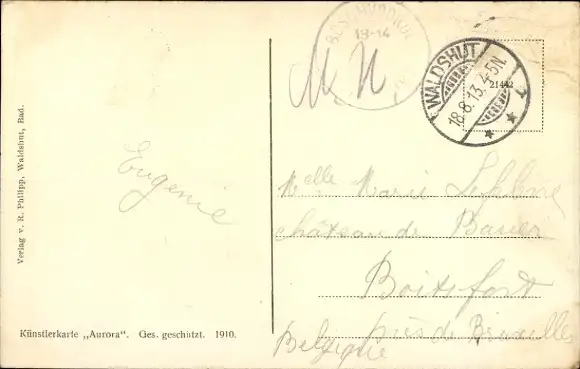 Verlag v. R. Philipp, Waldshut, Bad.
Eugenie
Künstlerkarte „Aurora“. Ges. geschützt. 1910.
18-14
WALDSHUT
18.8.13. 4-5N.
21442
Melle Marie
château de Bauer
Boitsfort
près de Bruxelles
Belgique